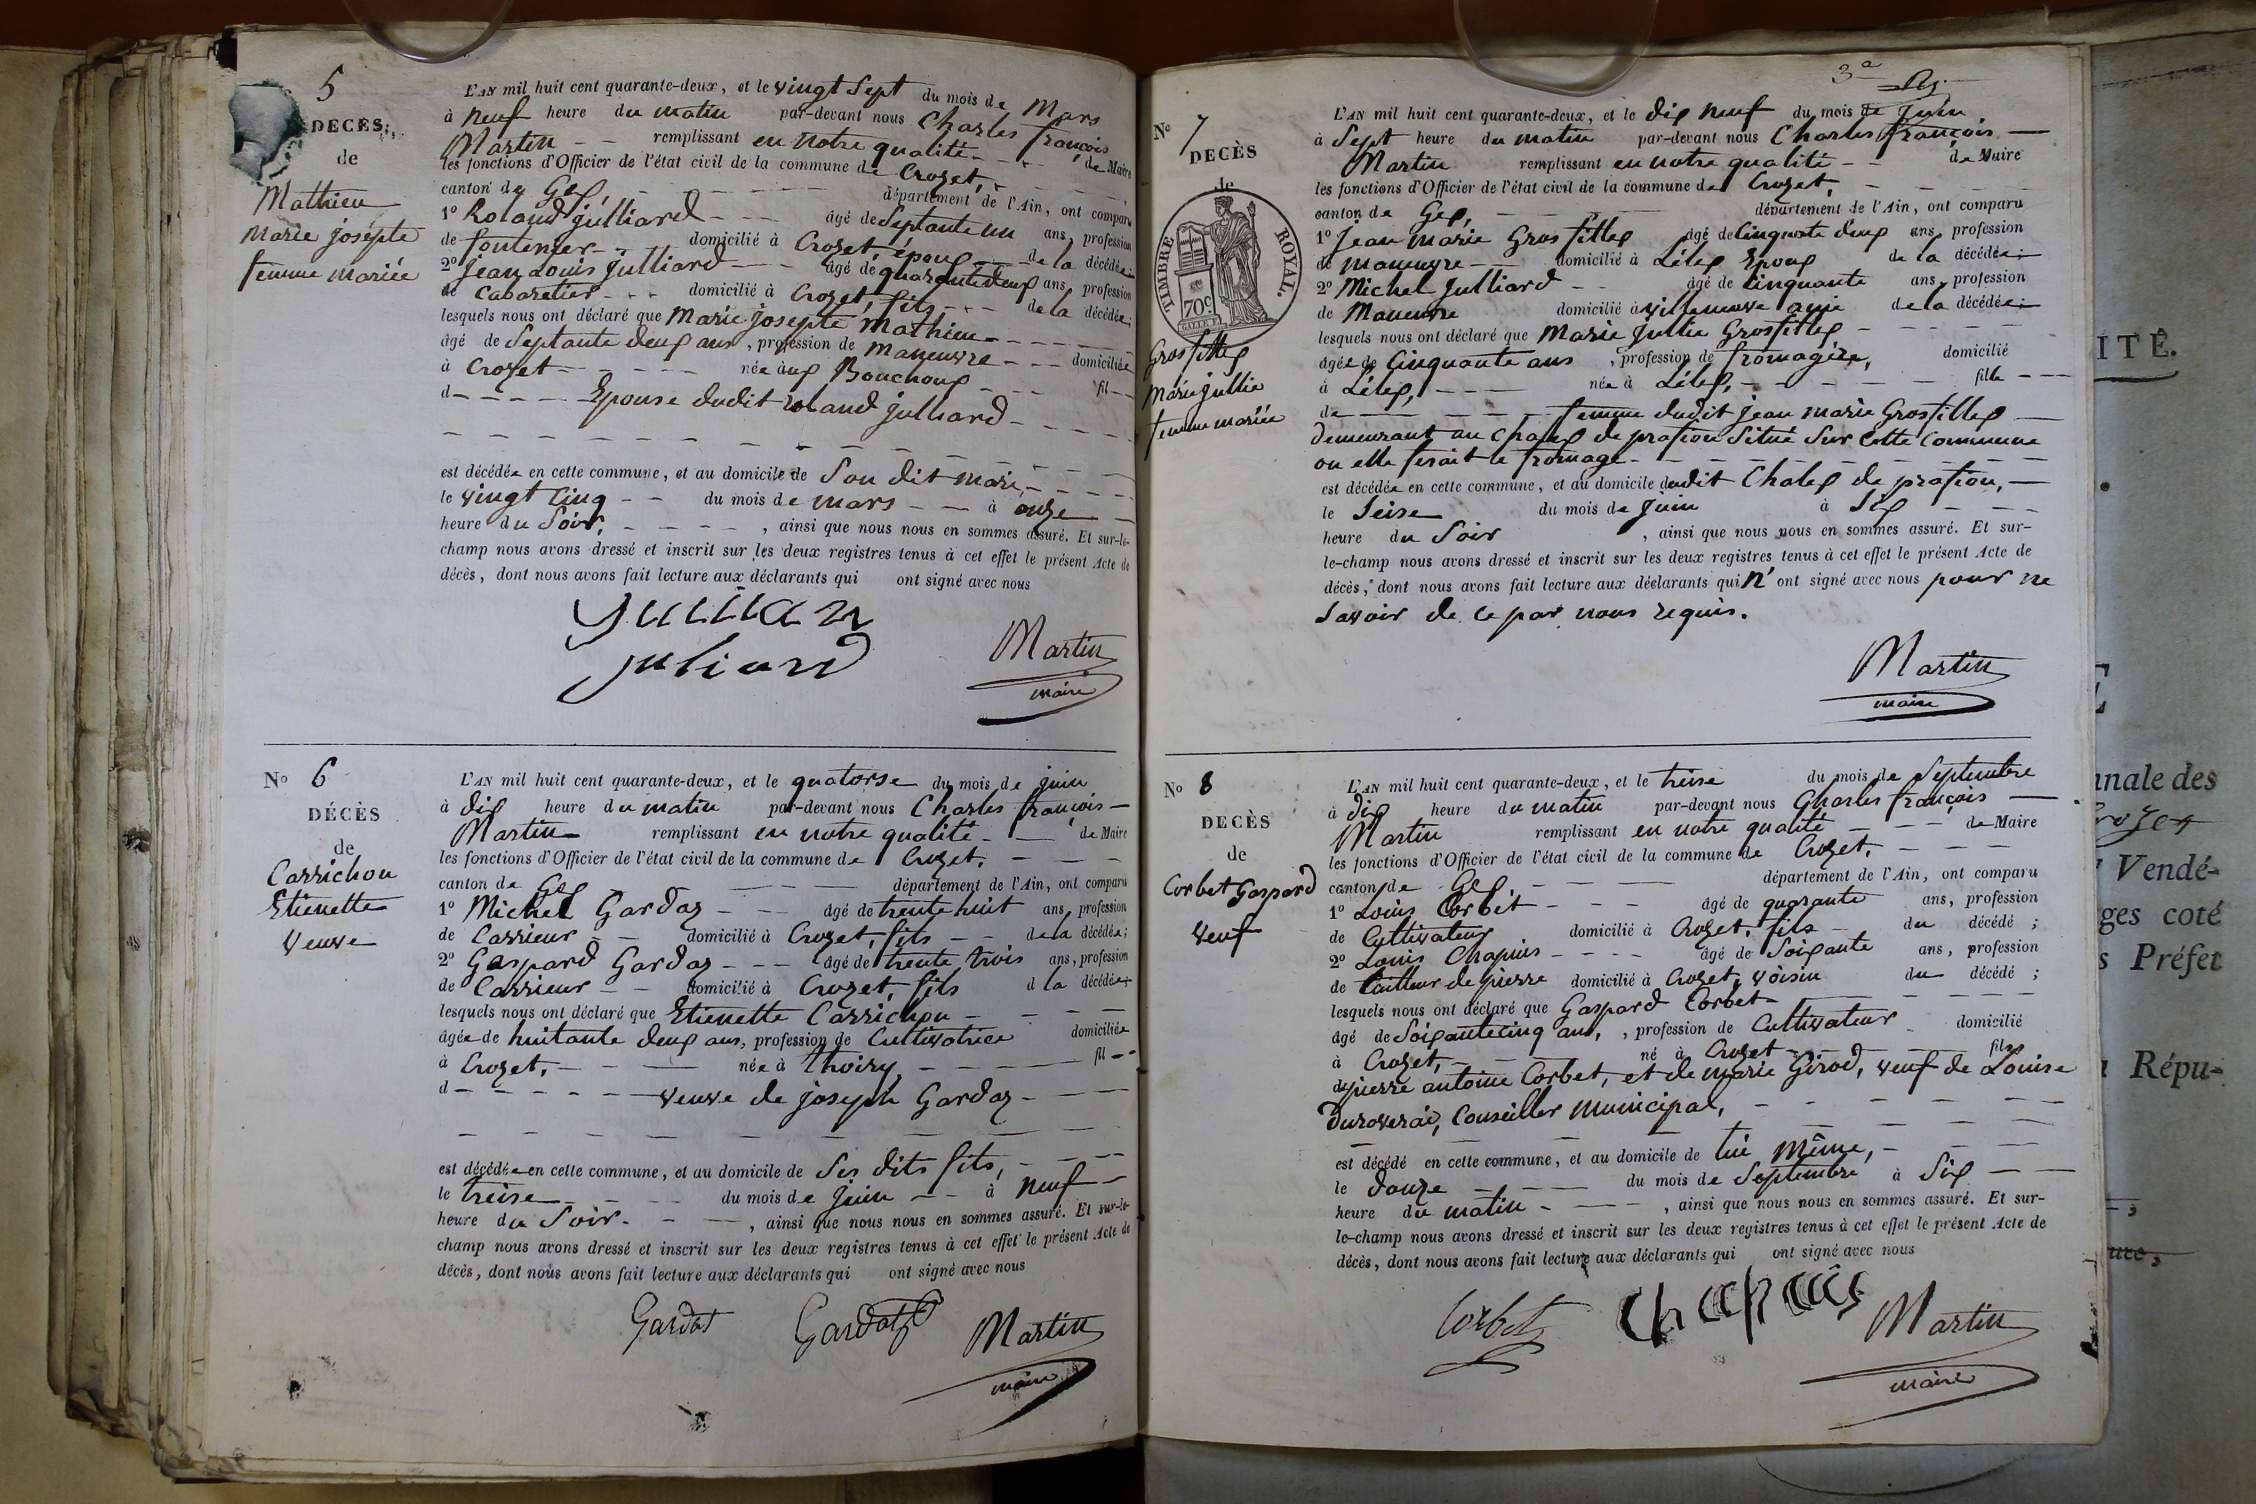 5
DECÈS;
de
Mathieu
Marie josepte
femme mariée
L'AN mil huit cent quarante-deux, et le vingt Sept du mois de Mars
à neuf heure du matin par-devant nous Charles françois
Martin remplissant en notre qualité de Maire
les fonctions d'Officier de l'état civil de la commune de Crozet,
canton de Gex, département de l'Ain, ont comparu
1º Roland julliard âgé de Septante un ans, profession
de fontenier domicilié à Crozet, époux de la décédée;
2º jean Louis julliard âgé de quarante deux ans, profession
de Cabaretier domicilié à Crozet, fils de la décédée;
lesquels nous ont déclaré que Marie josepte Mathieu
âgé de Septante deux ans, profession de maneuvre domiciliée
à Crozet née aux Bouchoux fil
d Epouse dudit roland julliard
est décédée en cette commune, et au domicile de Son dit mari,
le vingt cinq du mois de mars à onze
heure du Soir, , ainsi que nous nous en sommes assuré. Et sur-le-
champ nous avons dressé et inscrit sur les deux registres tenus à cet effet le présent Acte de
décès, dont nous avons fait lecture aux déclarants qui ont signé avec nous
juliard
Martin
maire
Nº 6
DÉCÈS
de
Carrichon
Etienette
Veuve
L'AN mil huit cent quarante-deux, et le quatorse du mois de juin
à dix heure du matin par-devant nous Charles françois
Martin remplissant en notre qualité de Maire
les fonctions d'Officier de l'état civil de la commune de Crozet,
canton de Gex département de l'Ain, ont comparu
1º Michel Gardaz âgé de trente huit ans, profession
de Carrieur domicilié à Crozet, fils de la décédée;
2º Gaspard Gardaz âgé de trente trois ans, profession
de Carrieur domicilié à Crozet, fils d la décédée;
lesquels nous ont déclaré que Etienette Carrichon
âgée de huitante deux ans, profession de Cultivatrice domiciliée
à Crozet, née à Thoiry, fil
d veuve de joseph Gardaz
est décédée en cette commune, et au domicile de Ses dits fils,
le treise du mois de juin à neuf
heure du Soir , ainsi que nous nous en sommes assuré. Et sur-le-
champ nous avons dressé et inscrit sur les deux registres tenus à cet effet le présent Acte de
décès, dont nous avons fait lecture aux déclarants qui ont signé avec nous
Gardas Gardaz Martin
maire
3e
Nº 7
DECÈS
de
TIMBRE ROYAL.
70c.
Grosfillex
Marie jullie
femme mariée
L'AN mil huit cent quarante-deux, et le dix neuf du mois de juin
à Sept heure du matin par-devant nous Charles françois
Martin remplissant en notre qualité de Maire
les fonctions d'Officier de l'état civil de la commune de Crozet,
canton de Gex, département de l'Ain, ont comparu
1º jean marie Grosfillex âgé de Cinquante deux ans, profession
de maneuvre domicilié à Lélex Epoux de la décédée;
2º Michel Julliard âgé de Cinquante ans, profession
de Maneuvre domicilié à villeneuve amie de la décédée;
lesquels nous ont déclaré que Marie Jullie Grosfillex
âgée de Cinquante ans, profession de fromagère, domicilié
à Lélex, née à Lélex, fille
de femme dudit jean marie Grosfillex
demeurant au chalex de prafion Situé Sur Cette Commune
ou elle ferait le fromage
est décédée en cette commune, et au domicile dudit Chalex de prafion,
le Seise du mois de juin à Six
heure du Soir , ainsi que nous nous en sommes assuré. Et sur-
le-champ nous avons dressé et inscrit sur les deux registres tenus à cet effet le présent Acte de
décès, dont nous avons fait lecture aux déclarants qui n'ont signé avec nous pour ne
Savoir de ce par nous requis.
Martin
maire
Nº 8
DECÈS
de
Corbet Gaspard
veuf
L'AN mil huit cent quarante-deux, et le treise du mois de Septembre
à dix heure du matin par-devant nous Charles françois
Martin remplissant en notre qualité de Maire
les fonctions d'Officier de l'état civil de la commune de Crozet,
canton de Gex département de l'Ain, ont comparu
1º Louis Corbet âgé de quarante ans, profession
de Cultivateur domicilié à Crozet, fils du décédé;
2º Louis Chapuis âgé de Soixante ans, profession
de tailleur de pierre domicilié à Crozet, voisin du décédé;
lesquels nous ont déclaré que Gaspard Corbet
âgé de Soixante cinq ans, , profession de Cultivateur domicilié
à Crozet, né à Crozet fils
de pierre antoine Corbet, et de marie Girod, veuf de Louise
Duroveraÿ, Conseiller municipal,
est décédé en cette commune, et au domicile de lui Même,
le douze du mois de Septembre à Six
heure du matin , ainsi que nous nous en sommes assuré. Et sur-
le-champ nous avons dressé et inscrit sur les deux registres tenus à cet effet le présent Acte de
décès, dont nous avons fait lecture aux déclarants qui ont signé avec nous
Corbet Chapuis Martin
maire
ITÉ.
nnale des
Vendé-
ges coté
s Préfet
Répu-